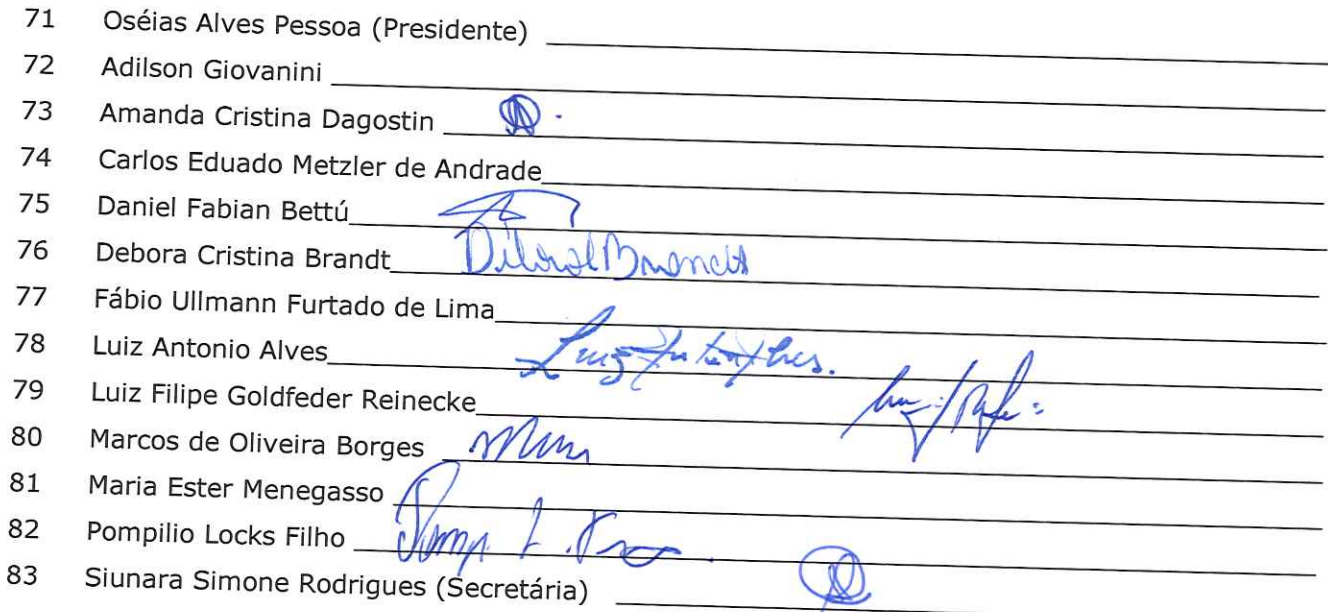 71 Oséias Alves Pessoa (Presidente)
72 Adilson Giovanini
73 Amanda Cristina Dagostin
74 Carlos Eduado Metzler de Andrade
75 Daniel Fabian Bettú
76 Debora Cristina Brandt
77 Fábio Ullmann Furtado de Lima
78 Luiz Antonio Alves
79 Luiz Filipe Goldfeder Reinecke
80 Marcos de Oliveira Borges
81 Maria Ester Menegasso
82 Pompilio Locks Filho
83 Siunara Simone Rodrigues (Secretária)